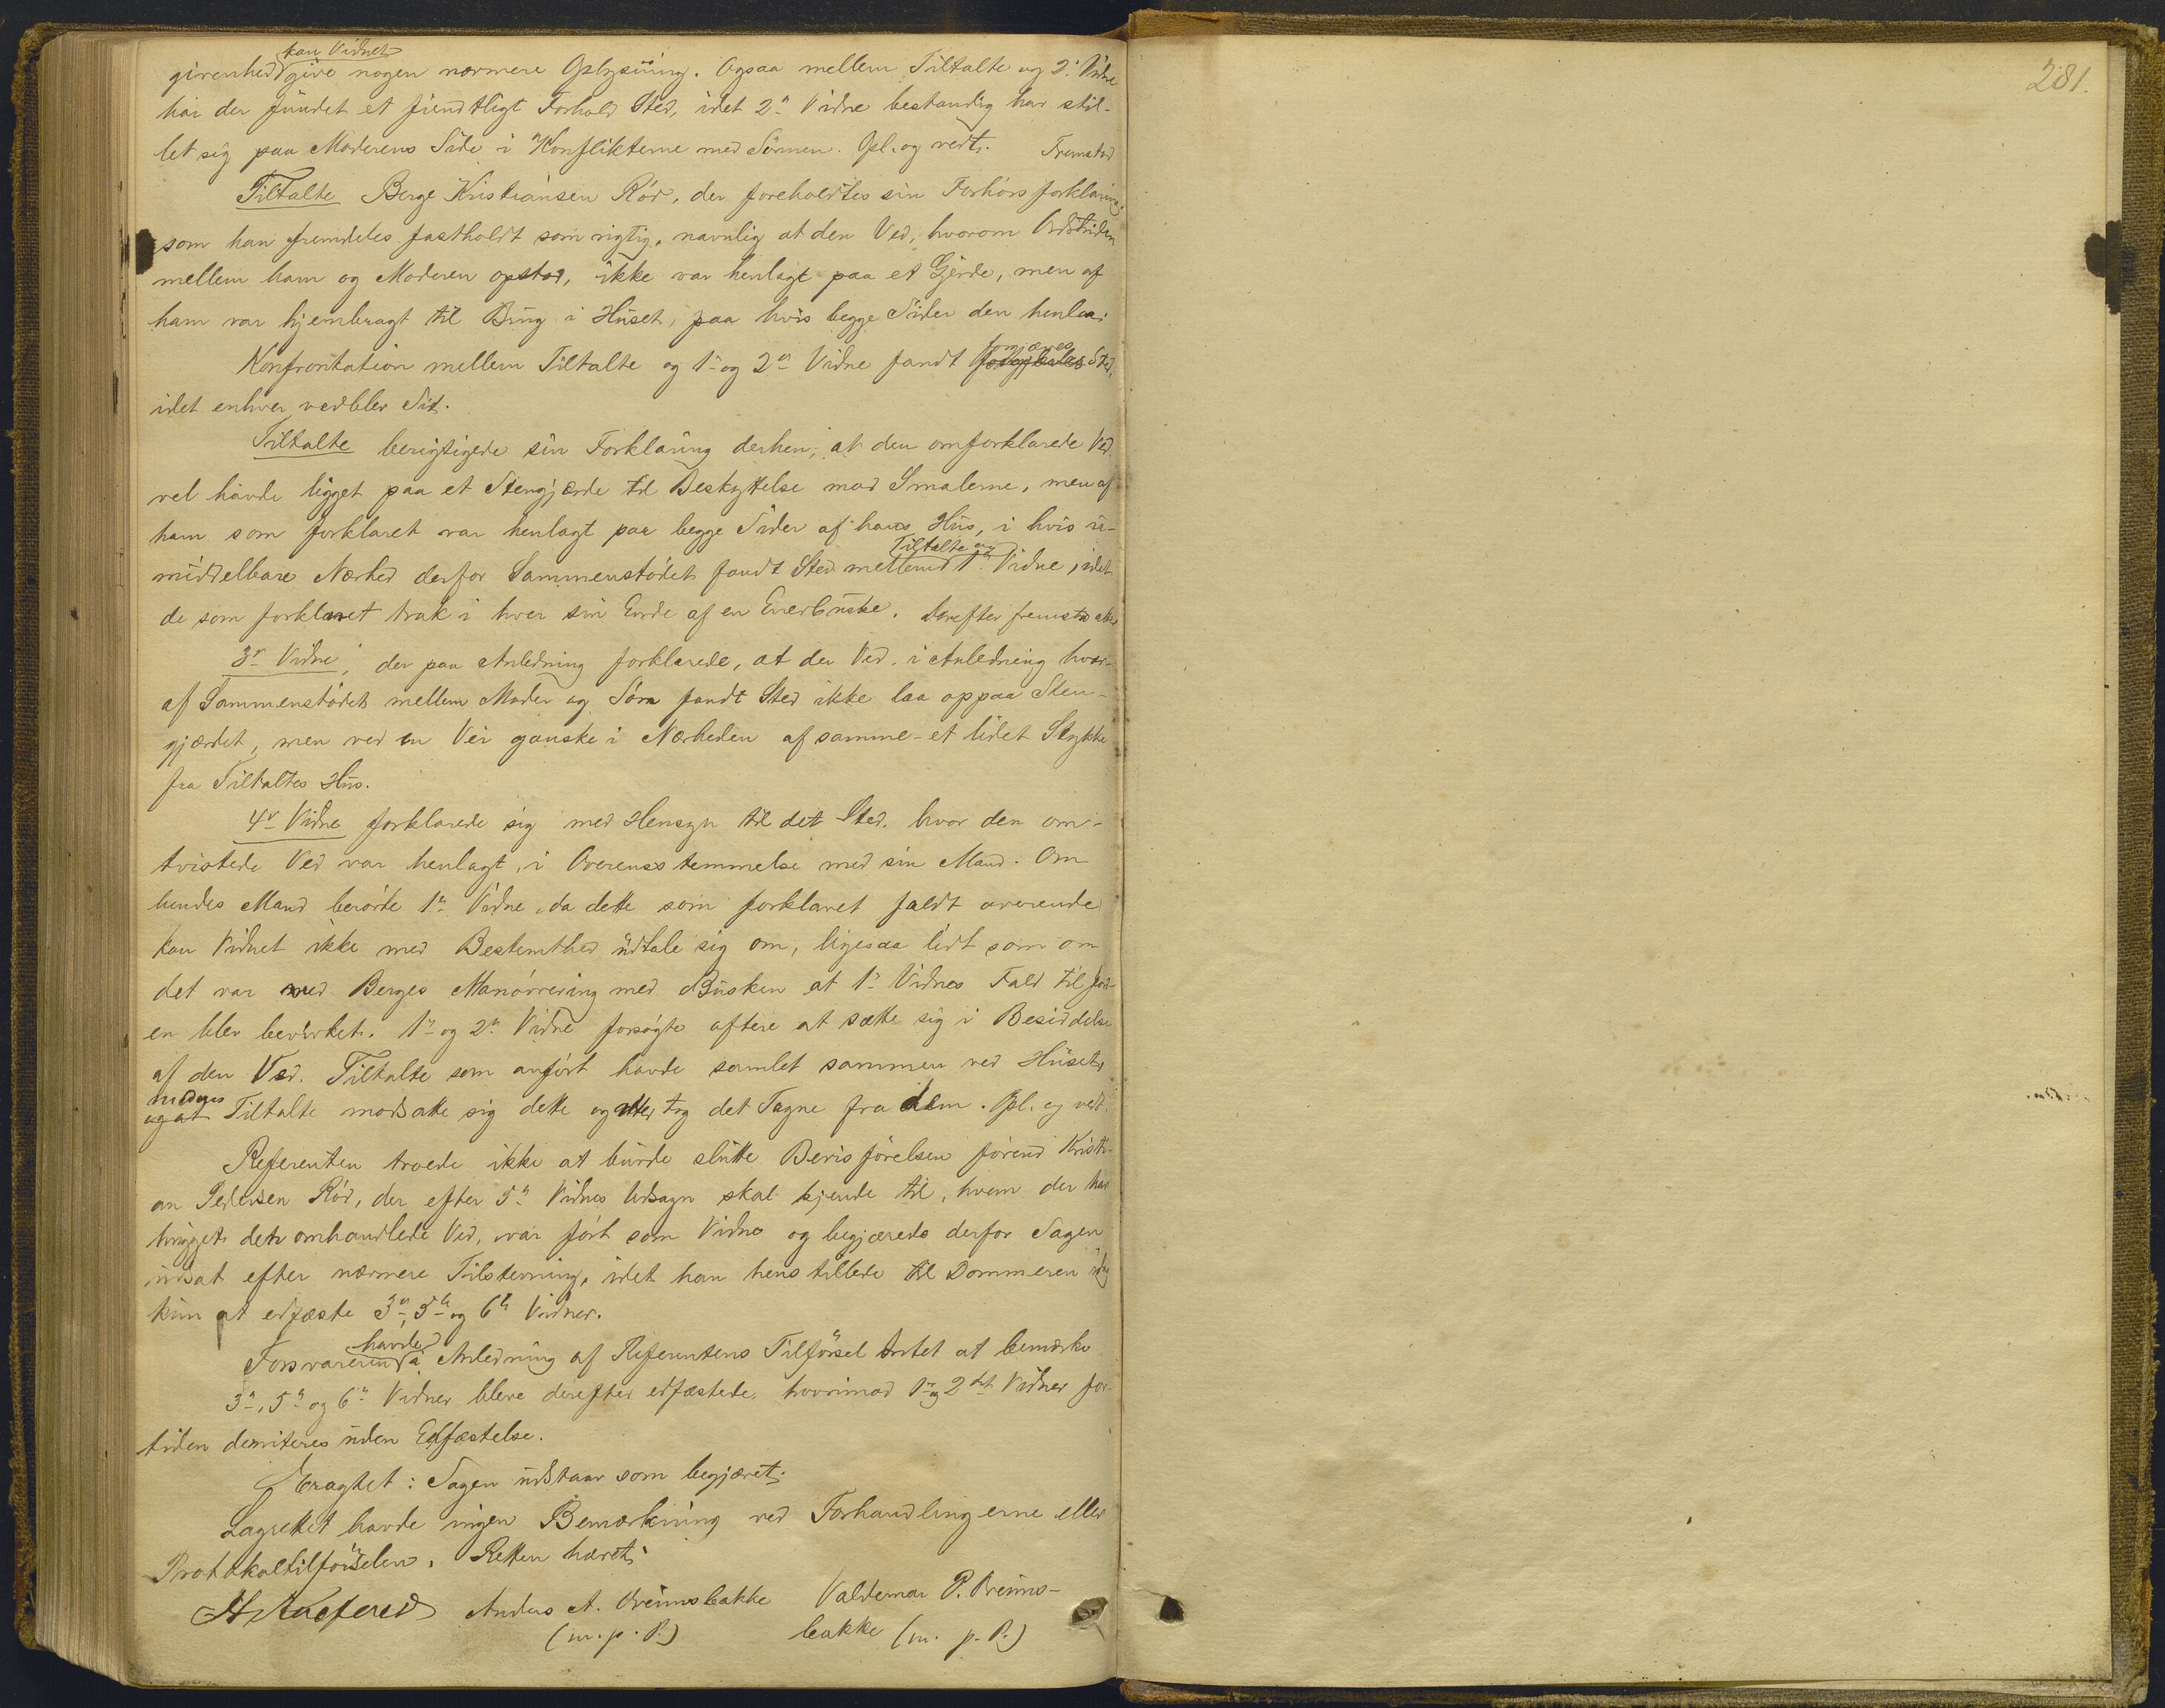 kan Vidnet
givenhed give nogen nærmere Oplysning. Ogsaa mellem Tiltalte og 2' Vidne
har der fundet et fiendtligt Forhold Sted, idet 2' Vidne bestandig har stil-
let sig paa Moderens Side i Konflikterne med Sønnen. Opl. og vedt. Fremstod
Tiltalte Berge Kristiansen Rød, der foreholdtes sin Forhørsforklaring
som han fremdeles fastholdt som rigtig, navnlig at den Ved, hvorom Ordstriden
mellem ham og Moderen opstod, ikke var henlagt paa et Gjerde, men af
ham var hjembragt til Brug i Huset, paa hvis begge Sider den henlaa.
forgjæves
Konfrontation mellem Tiltalte og 1' og 2' Vidne fandt Sted,
idet enhver vedblev Sit.
Tiltalte berigtigede sin Forklaring derhen, at den omforklarede Ved
vel havde ligget paa et Stengjærde til Beskyttelse mod Smalerne, men af
ham som forklaret var henlagt paa begge Sider af hans Hus, i hvis u-
Tiltalte og
middelbare Nærhed derfor Sammenstødet fandt Sted mellem 1' Vidne, idet
de som forklaret trak i hver sin Ende af en Enerbuske. Derefter fremstod atter
3' Vidne, der paa Anledning forklarede, at den Ved, i Anledning hvor-
af Sammenstødet mellem Moder og Søn fandt Sted ikke laa oppaa Sten-
gjærdet, men ved en Vei ganske i Nærheden af samme - et lidet Stykke
fra Tiltaltes Hus.
4' Vidne forklarede sig med Hensyn til det Sted, hvor den om-
tvistede Ved var henlagt, i Overensstemmelse med sin Mand. Om
hendes Mand berørte 1' Vidne, da dette som forklaret faldt overende
kan Vidnet ikke med Bestemthed udtale sig om, ligesaa lidt som om
det var ved Berges Manøvrering med Busken at 1' Vidnes Fald til Jord-
en blev bevirket. 1' og 2' Vidne forsøgte oftere at sætte sig i Besiddelse
af den Ved, Tiltalte som anført havde samlet sammen ved Huset,
medens
og at Tiltalte modsatte sig dette og tog det Tagne fra dem. Opl. og vedt.
Referenten troede ikke at burde slutte Bevisførelsen førend Kristi-
an Pedersen Rød, der efter 5' Vidnes Udsagn skal kjende til, hvem der har
hugget den omhandlede Ved, var ført som Vidne og begjærede derfor Sagen
udsat efter nærmere Tilstevning, idet han henstillede til Dommeren idag
kun at edfæste 3', 5' og 6' Vidner.
havde
Forsvareren i Anledning af Referentens Tilførsel Intet at bemærke
3', 5' og 6' Vidner bleve derefter edfæstede, hvorimod 1' og 2det Vidner for-
tiden demiteres uden Edfæstelse.
Eragtet: Sagen udstaar som begjæret.
Lagrettet havde ingen Bemærkning ved Forhandlingerne eller
Protokoltilførselen. Retten hævet.
Anders A. Breimsbakke Valdemar P. Breims-
(m. p. P.) bakke (m. p. P.)
281.